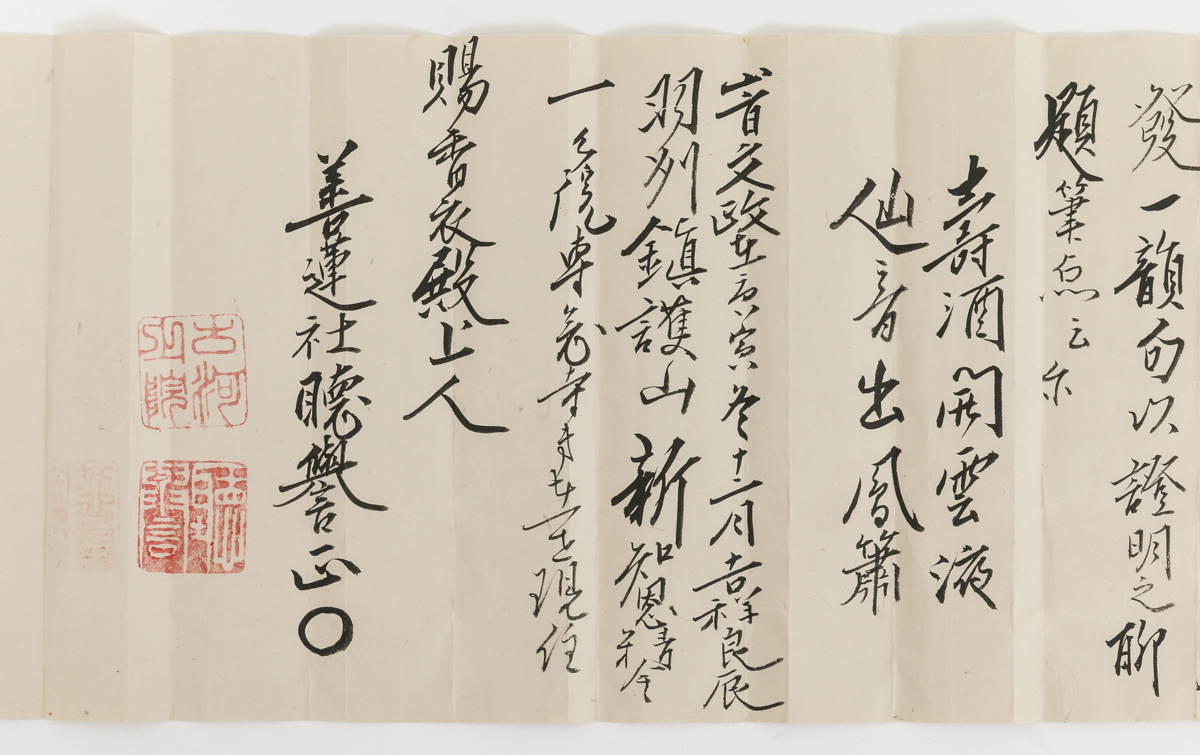 發一韻句以證明之聊
題筆点云尓
壽酒開雲液
仙音出鳳簫
旹文政庚寅冬十二月吉祥良辰
羽州鎮護山新知恩
一院専念寺現住
賜香衣殿上人
善蓮社聴譽正〇
古河
院
聴
譽